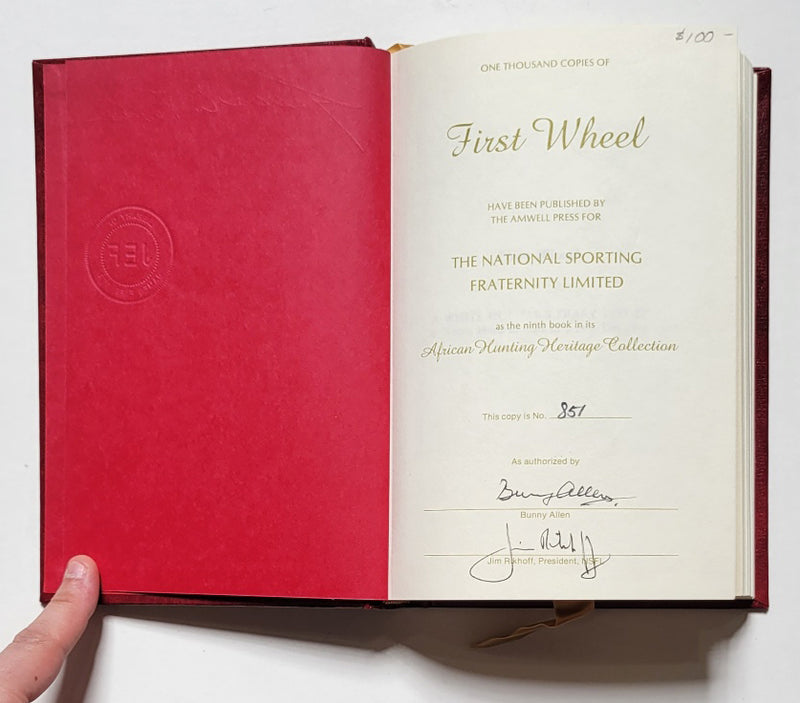 $100 –
ONE THOUSAND COPIES OF
First Wheel
HAVE BEEN PUBLISHED BY
THE AMWELL PRESS FOR
THE NATIONAL SPORTING
FRATERNITY LIMITED
as the ninth book in its
African Hunting Heritage Collection
This copy is No. 851
As authorized by
Bunny Allen.
Bunny Allen
Jim Rikhoff
Jim Rikhoff, President, NSFL
JEF